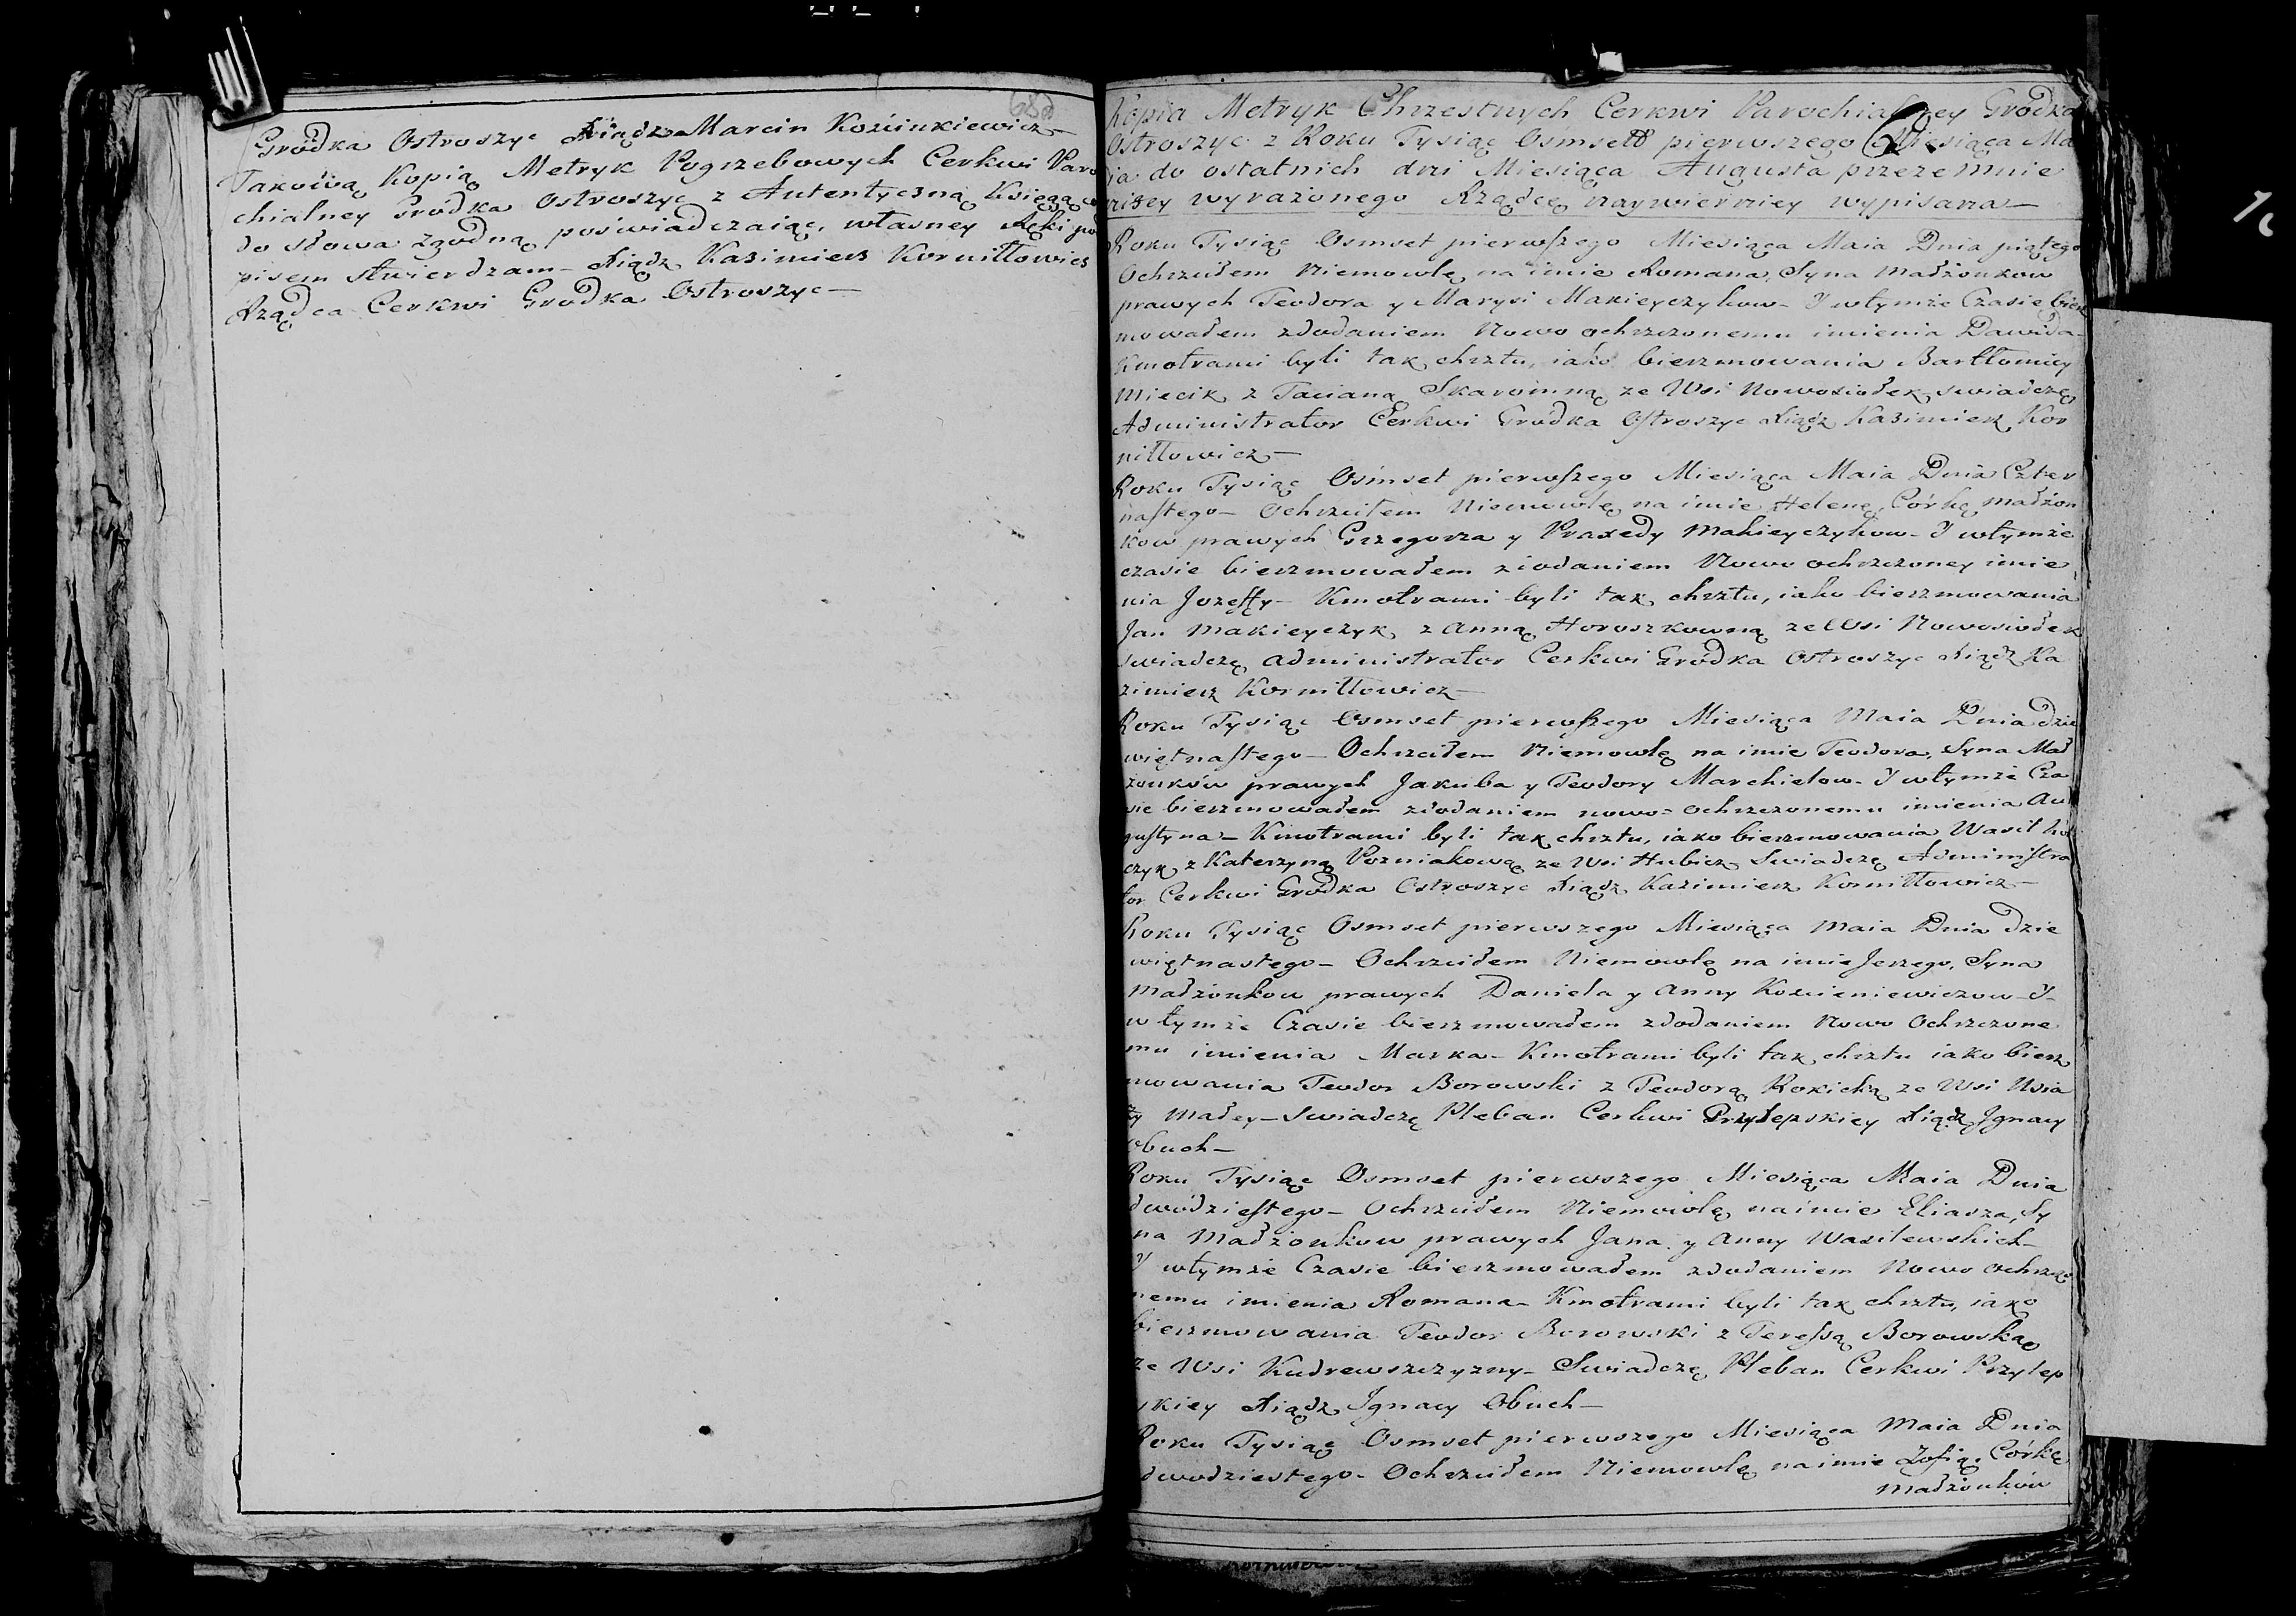 Gródka Ostroszyc Xiądz Marcin Kozúinkiewicz—
Takową Kopią Metryk Pogrzebowych Cerkwi Paro
chialney Gródka Ostroszyc z Autentyczną Księgą
do słowa zgodną poświadczaiąc, własney Ręki po
pisem stwierdzam— Xiądz Kazimierz Korniłłowicz
Rządca Cerkwi Grodka Ostroszyc—
Kopia Metryk Chrzestnych Cerkwi Parochialney Grodka
Ostroszyc z Roku Tysiąc Osmset pierwszego Miesiąca Ma
ia do ostatnich dni Miesiąca Augusta przeze mnie
niżey wyrażonego Rządcę naywierniey wypisana—
Roku Tysiąc Osmset pierwszego Miesiąca Maia Dnia piątego
Ochrzciłem Niemowlę na imie Romana, Syna małżonkow
prawych Teodora y Marysi Makieyczykow— I wtymże Czasie bierz
mowałem zdodaniem Nowo ochrzczonemu imienia Dawida—
Kmotrami byli tak chrztu, iako bierzmowania Bartłomiey
Miecik z Tacianą Skarominą ze Wsi Nowosiołek, swiadczę
Administrator Cerkwi Gródka Ostroszyc Xiądz Kazimierz Kor
niłłowicz—
Roku Tysiąc Osmset pierwszego Miesiąca Maia Dnia Czter
nastego— Ochrzciłem Niemowlę na imie Helenę, Córkę małżon
kow prawych Grzegorza y Praxedy Makieyczykow— I wtymże
czasie bierzmowałem zdodaniem Nowo ochrzczoney imie
nia Jozeffy— Kmotrami byli tak chrztu, iako bierzmowania
Jan Makieyczyk z Anną Horoszkowną ze Wsi Nowosiołek
swiadczę Administrator Cerkwi Gródka Ostroszyc Xiądz Ka
zimierz Korniłłowicz—
Roku Tysiąc Osmset pierwszego Miesiąca Maia Dnia dzie
więtnastego— Ochrzciłem Niemowlę na imie Teodora, Syna Mał
żonków prawych Jakuba y Teodory Marchielow— I wtymże Cza
sie bierzmowałem zdodaniem nowo-ochrzczonemu imienia Au
gustyna— Kmotrami byli tak chrztu, iako bierzmowania Wasil
czyk z Katerzyną Pozniakową ze Wsi Hubicz Swiadczę Administra
tor Cerkwi Gródka Ostroszyc Xiądz Kazimierz Korniłłowicz—
Roku Tysiąc Osmset pierwszego Miesiąca Maia Dnia dzie
więtnastego— Ochrzciłem Niemowlę na imie Jerzego, Syna
Małżonkow prawych Daniela y Anny Kozieniewiczow— I
wtymże Czasie bierzmowałem zdodaniem Nowo Ochrzczone
mu imienia Marka— Kmotrami byli tak chrztu iako bierz
mowania Teodor Borowski z Teodorą Rokicką ze Wsi Usia
ży Małey— Swiadczę Pleban Cerkwi Przylepskiey Xiądz Jgnacy
Obuch—
Roku Tysiąc Osmset pierwszego Miesiąca Maia Dnia
dwódziestego— Ochrzciłem Niemowlę na imie Eliasza, Sy
na Małżonkow prawych Jana y Anny Wasilewskich—
I wtymże Czasie bierzmowałem zdodaniem Nowo ochrzczo
nemu imienia Romana— Kmotrami byli tak chrztu, iako
bierzmowania Teodor Borowski z Teressą Borowską
ze Wsi Kudrewszczyzny— Swiadczę Pleban Cerkwi Przylep
skiey Xiądz Jgnacy Obuch—
Roku Tysiąc Osmset pierwszego Miesiąca Maia Dnia
dwodziestego— Ochrzciłem Niemowlę na imie Zofią, Córkę
Małżonków